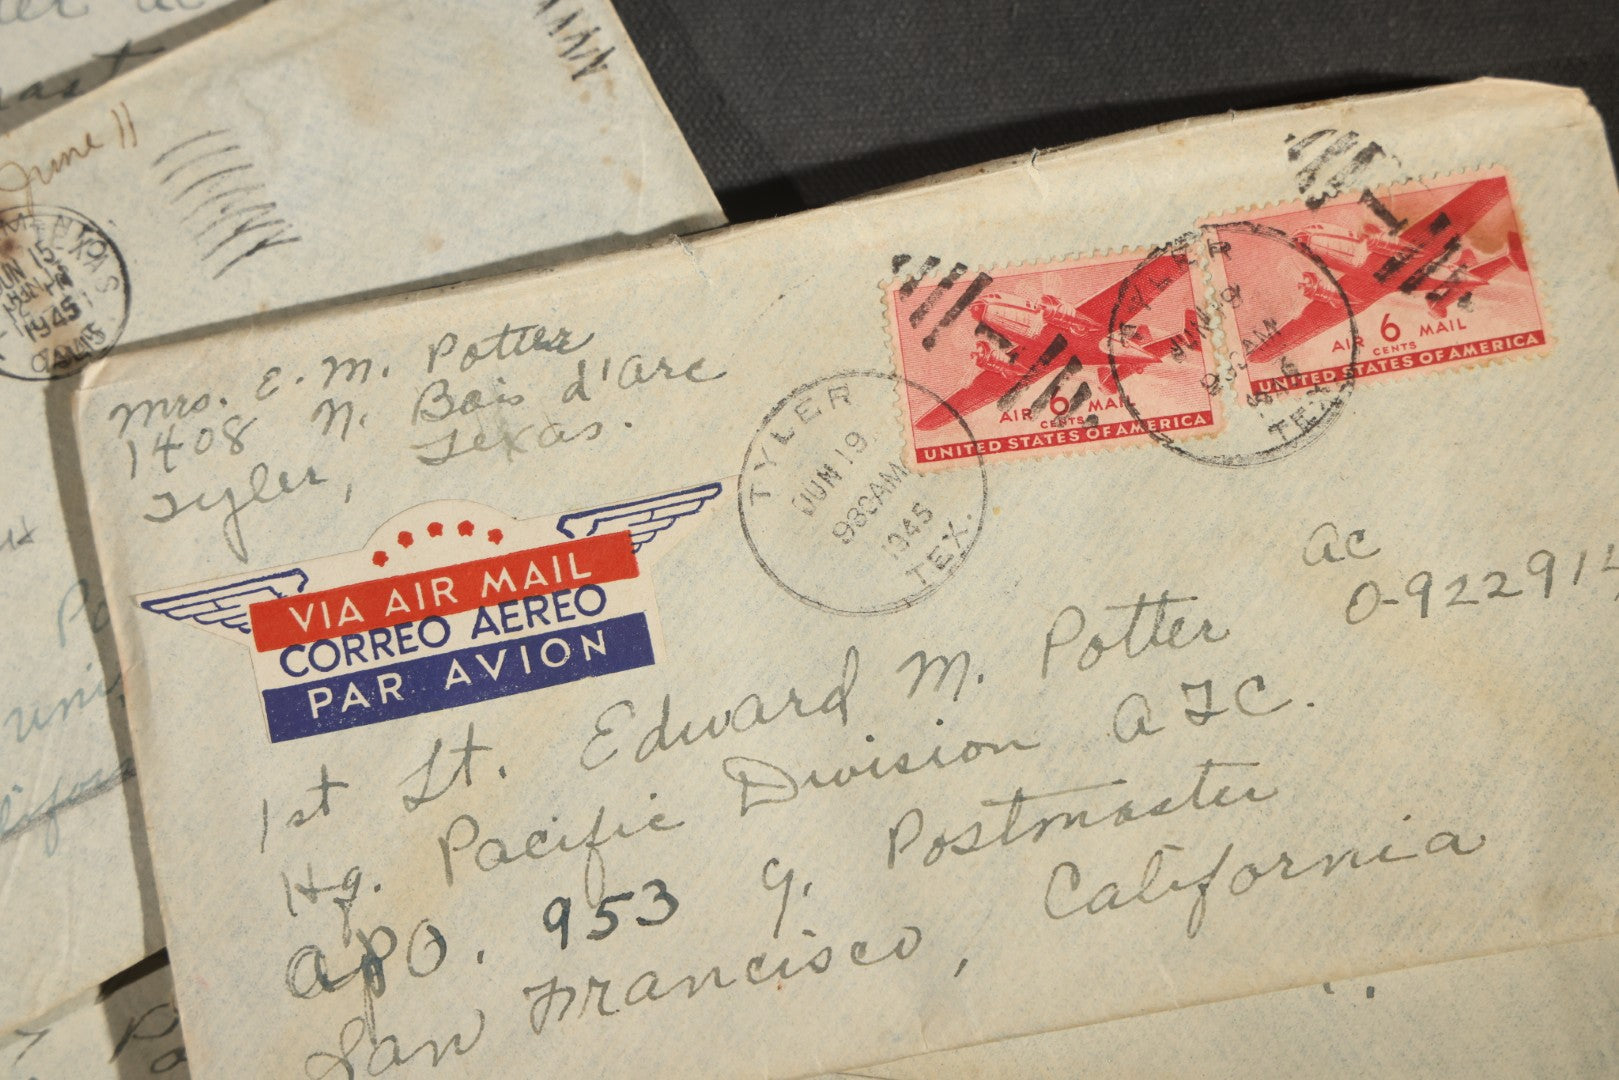 June 11
JUN 15
1945
Mrs. E. M. Potter
1408 N. Bois d'arc
Tyler, Texas.
VIA AIR MAIL
CORREO AEREO
PAR AVION
TYLER
JUN 19
930AM
1945
TEX.
AIR 6 MAIL
CENTS
UNITED STATES OF AMERICA
TYLER
JUN 19
930AM
1945
TEX.
AIR 6 MAIL
CENTS
UNITED STATES OF AMERICA
ac
1st Lt. Edward M. Potter O-922914
Hq. Pacific Division ATC.
APO. 953 % Postmaster
San Francisco, California